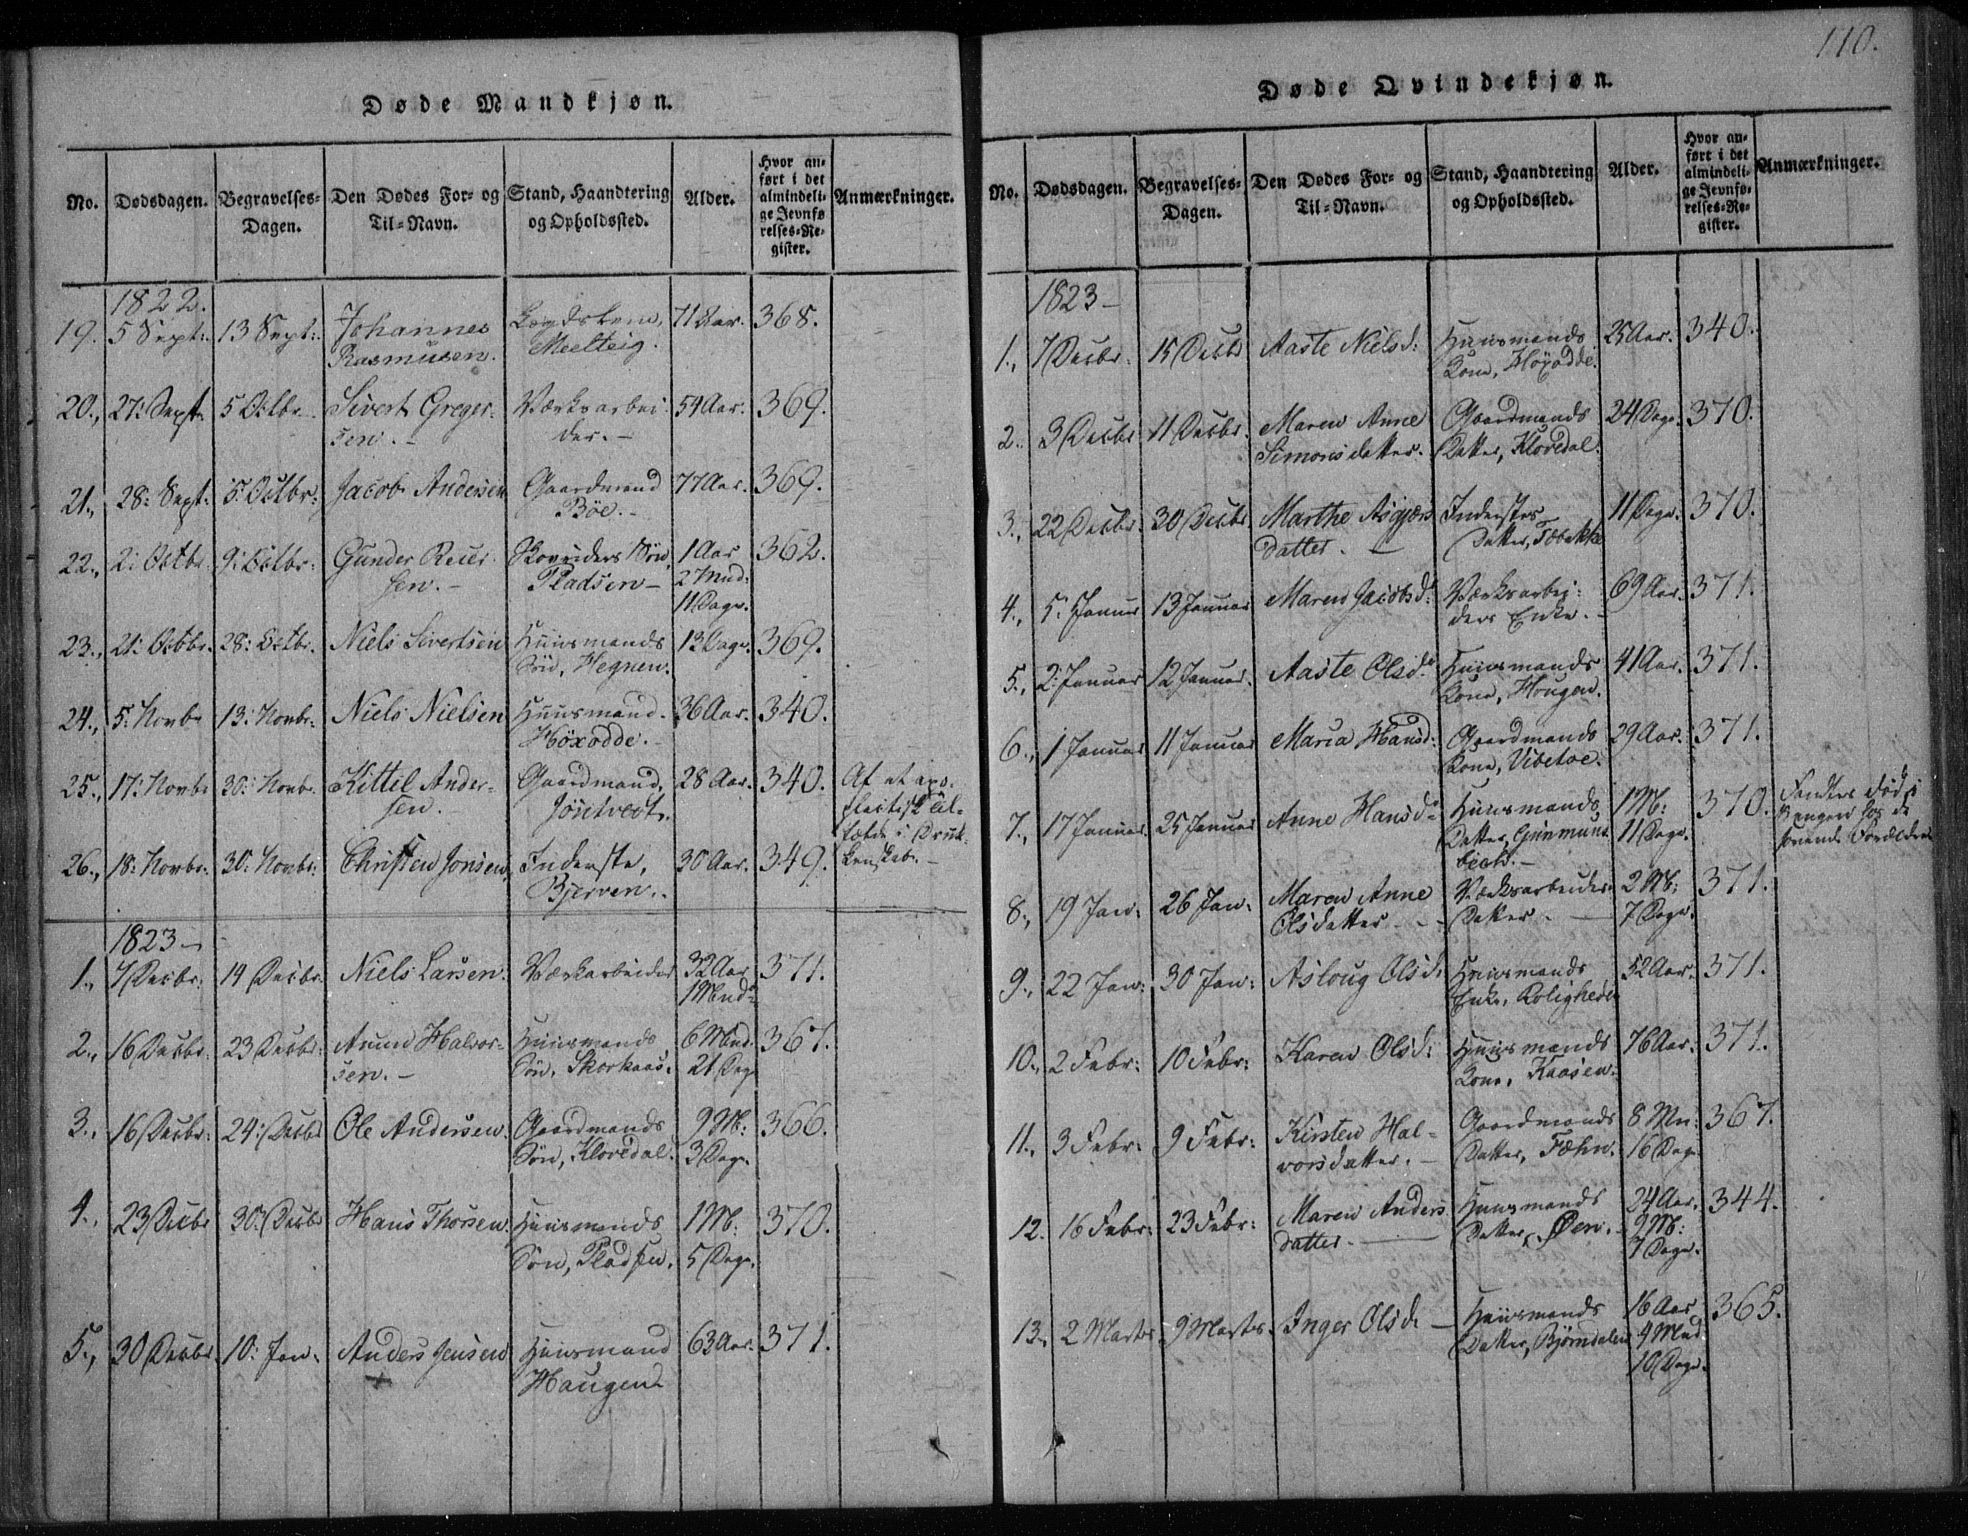 Døde Mandkjøn.
No. Dødsdagen. Begravelses-Dagen. Den Dødes For- og Til-Navn. Stand, Haandtering og Opholdssted. Alder. Hvor anført i det almindelige Jevnførelses-Register. Anmærkninger.
1822.
19. 5 Sept: 13 Sept: Johannes Rasmusen. Meelteig. 71 Aar. 368.
20., 27: Sept. 5 Octbr. Sivert Gregersen. Værksarbeider. 54 Aar. 369.
21., 28: Sept: 5: Octbr: Jacob Andersen Gaardmand Böe. 77 Aar. 369.
22., 2: Octbr. 9: Octbr: Gunder Reiersen. Skovriders Søn, Pladsen 1 Aar 2 Mnd: 11 Dage. 362.
23., 21: Octbr. 28: Octbr. Niels Sivertsen Huusmands Søn, Hegnen. 13 Dage. 369.
24., 5: Novbr 13: Novbr: Niels Nielsen Huusmand. Höxodde. 36 Aar. 340.
25., 17: Novbr 30: Novbr. Kittil Andersen. Gaardmand, Jöntvedt. 28 Aar. 340. Af et apoplectisk Tilfælde i Drukkenskab.
26., 18: Novbr. 30: Novbr: Christen Jonsen, Inderste, Bjerven. 30 Aar. 349.
1823
1., 7 Decbr. 14 Decbr. Niels Larsen. Værksarbeider 32 Aar 1 Mnd 371.
2., 16 Decbr. 23 Decbr. Amund Halvorsen. Huusmands Søn, Skorkaas. 6 Mnd. 21 Dag 367.
3., 16 Decbr. 24: Decbr Ole Andersen. Gaardmands Søn, Klovedal. 9 M: 3 Dage. 366.
4., 23 Decbr 30: Decbr Hans Thorsen. Huusmands Søn, Pladsen. 1 M: 5 Dage. 370.
5., 30 Decbr. 10: Jan. Anders Jensen Huusmand Haugen 63 Aar. 371.
110.
Døde Qvindekjøn.
No. Dødsdagen. Begravelses-Dagen. Den Dødes For- og Til-Navn. Stand, Haandtering og Opholdssted. Alder. Hvor anført i det almindelige Jevnførelses-Register. Anmærkninger.
1823
1., 7 Decbr. 15 Decbr Aaste Nielsd: Huusmands Kone, Höxodde. 25 Aar. 340.
2. 3 Decbr 11 Decbr. Maren Anne Simonsdatter. Gaardmands Datter, Klovedal. 24 Dage. 370.
3., 22 Decbr. 30 Decbr Marthe Asgjers datter. Inderstes Datter, 11 Dage. 370.
4., 5. Januar 13 Januar Maren Jacobsd: Værksarbeiders Enke. 69 Aar. 371.
5., 2: Januar 12 Januar. Aaste Olsd: Huusmands Kone, Hougen. 41 Aar. 371.
6., 1 Januar 11 Januar Maria Hansd: Gaardmands Kone, Vibetoe. 29 Aar. 371.
7., 17 Januar. 25 Januar Anne Hansd: Huusmands Datter, 1 M: 11 Dage. 370. Fandtes død i Sengen hos de sovende Forældre
8., 19 Jan: 26 Jan: Maren Anne Olsdatter Værksarbeiders Datter. 2 M: 7 Dage. 371.
9., 22 Jan: 30 Jan: Asloug Olsd: Huusmands Enke, Roligheden 52 Aar. 371.
10., 2 Febr: 10 Febr: Karen Olsd: Huusmands Kone, Kaasen. 76 Aar. 371.
11., 3 Febr: 9 Febr: Kirsten Halvorsdatter. Gaardmands Datter, Fæhn. 8 Mn: 16 Dage 367.
12. 16 Febr: 23 Febr: Maren Anders datter. Huusmands Datter, Öen. 24 Aar. 9 M: 7 Dage. 344.
13., 2 Marts. 9 Marts. Inger Olsd Huusmands Datter, Björndalen 16 Aar 4 Mnd 10 Dage. 365.